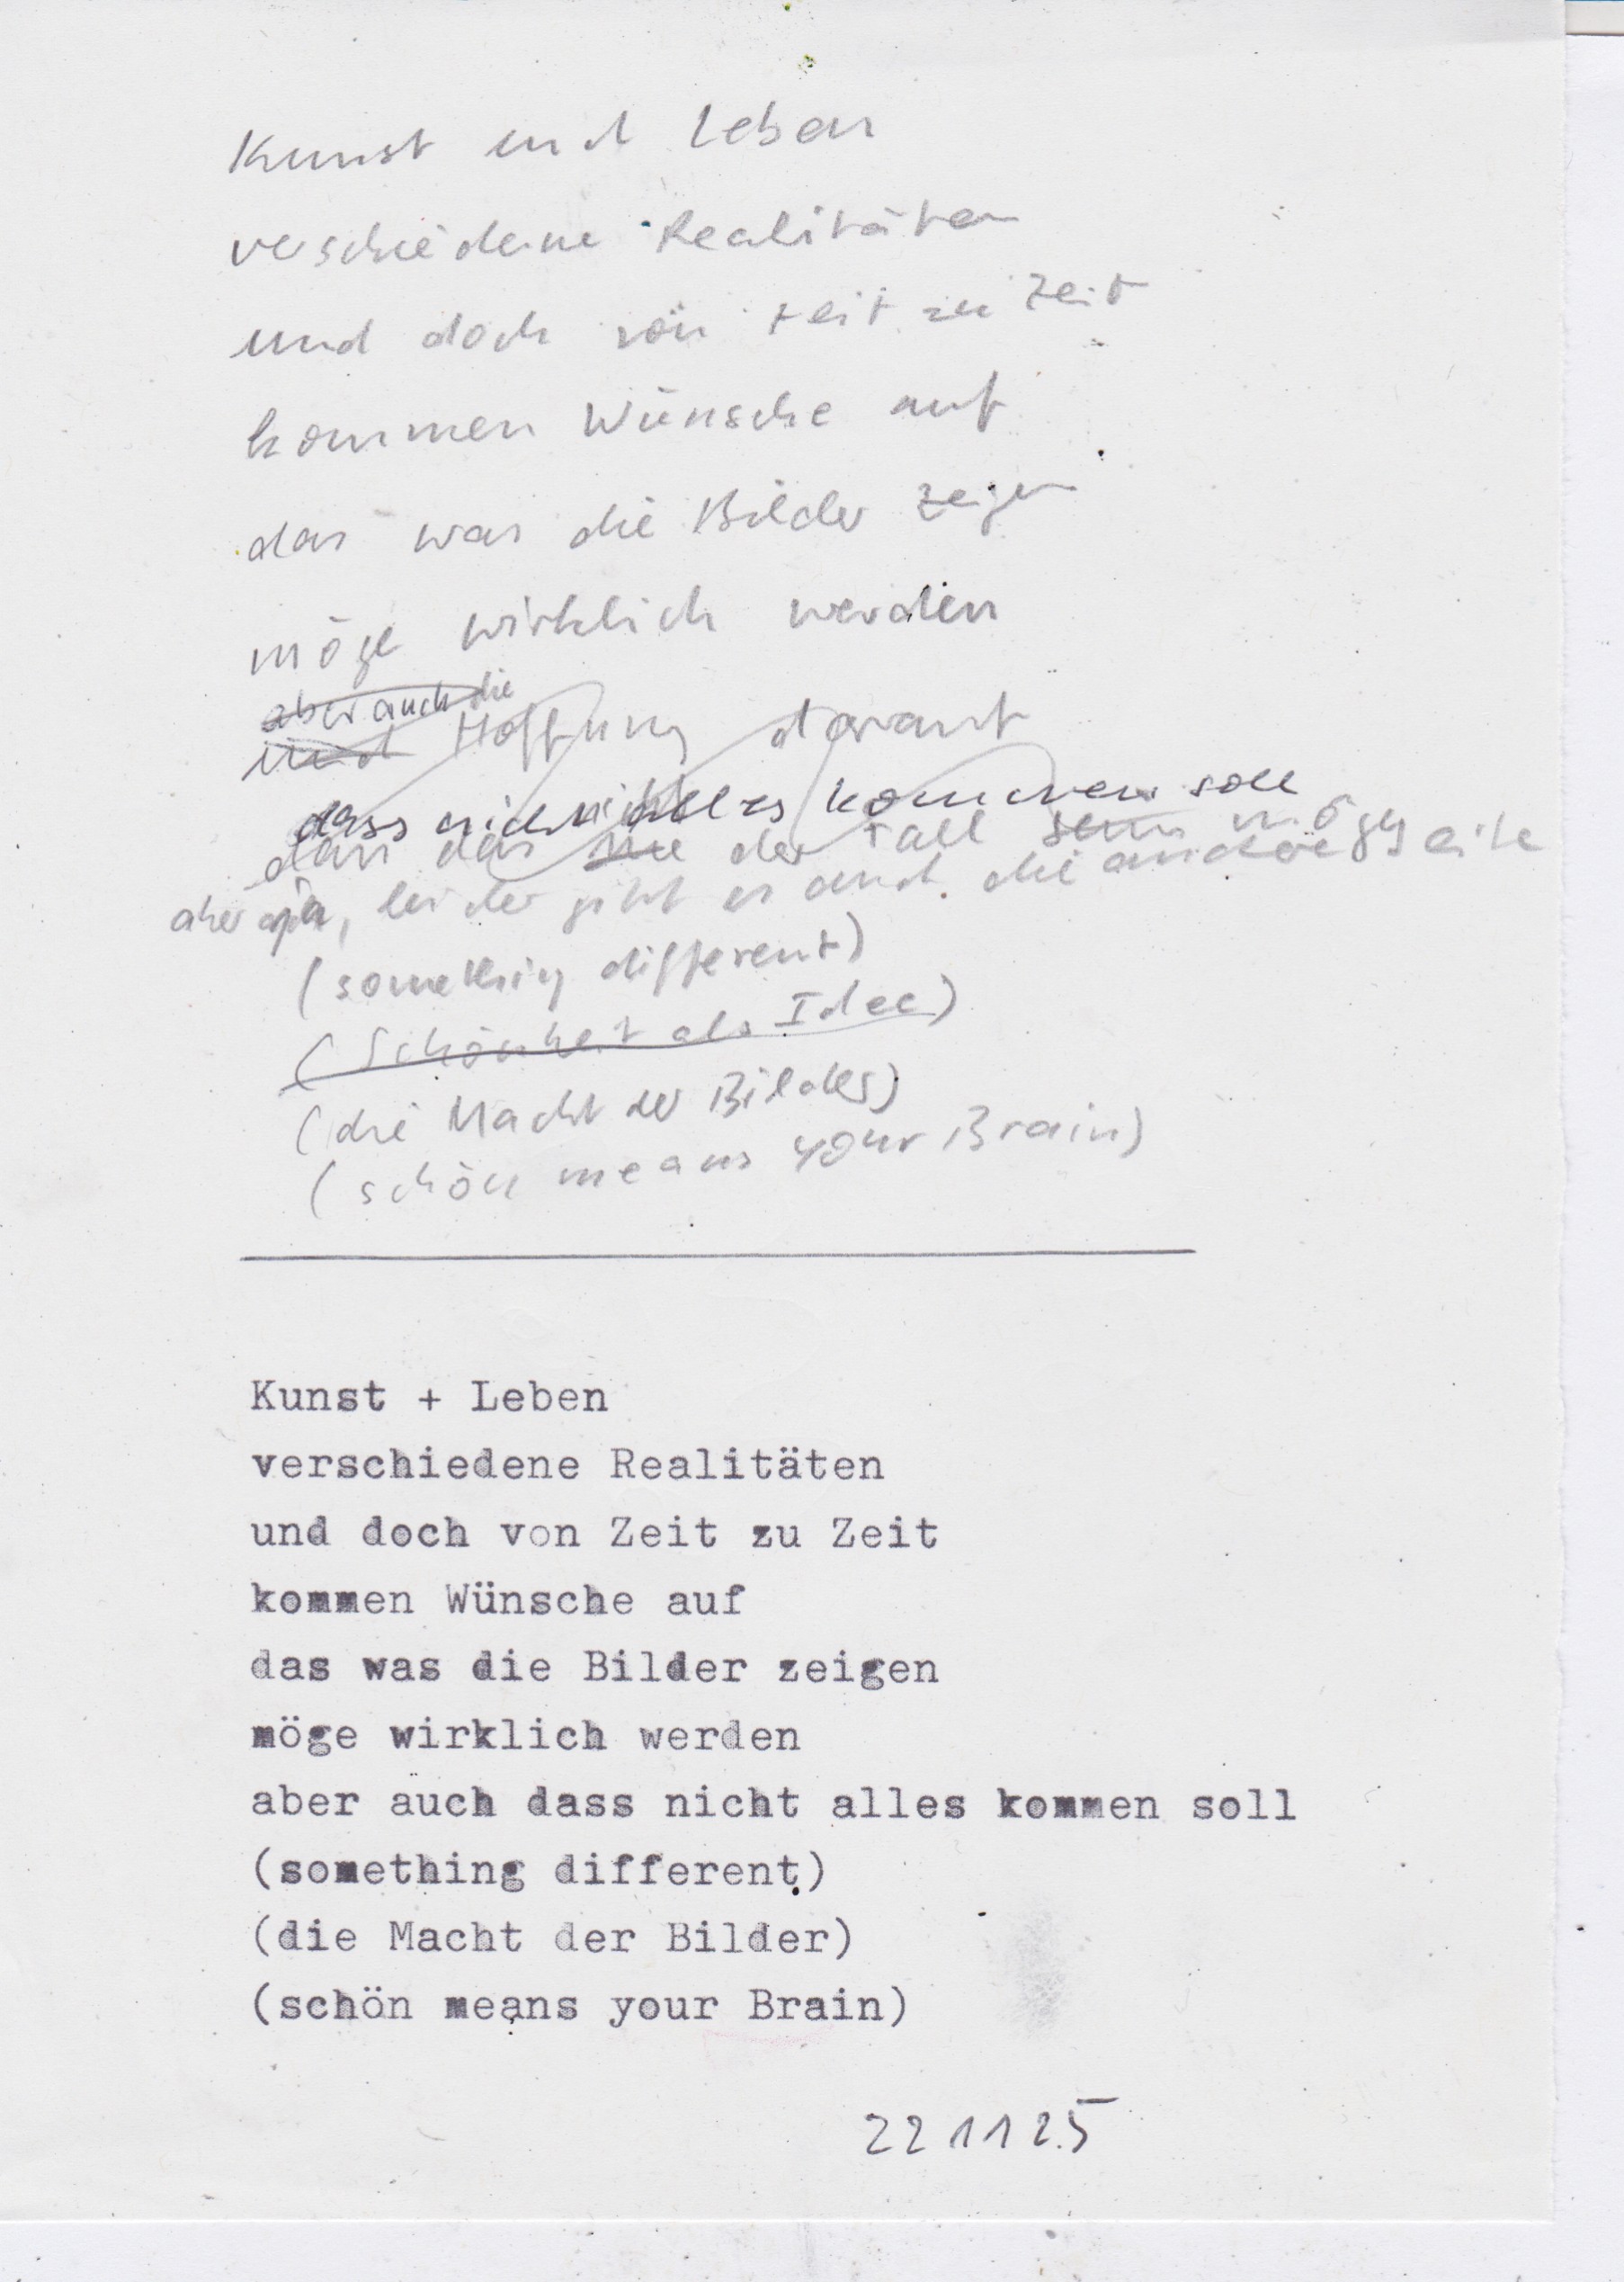 Kunst und Leben
verschiedene Realitäten
und doch von Zeit zu Zeit
kommen Wünsche auf
das was die Bilder zeigen
möge wirklich werden
aber auch die
und Hoffnung darauf
dass nicht alles kommen soll
dass das der Fall sein möge
aber ja, leider gibt es auch die andere Seite
(something different)
(Schönheit als Idee)
(die Macht der Bilder)
(schön means your Brain)
Kunst + Leben
verschiedene Realitäten
und doch von Zeit zu Zeit
kommen Wünsche auf
das was die Bilder zeigen
möge wirklich werden
aber auch dass nicht alles kommen soll
(something different)
(die Macht der Bilder)
(schön means your Brain)
22 11 25